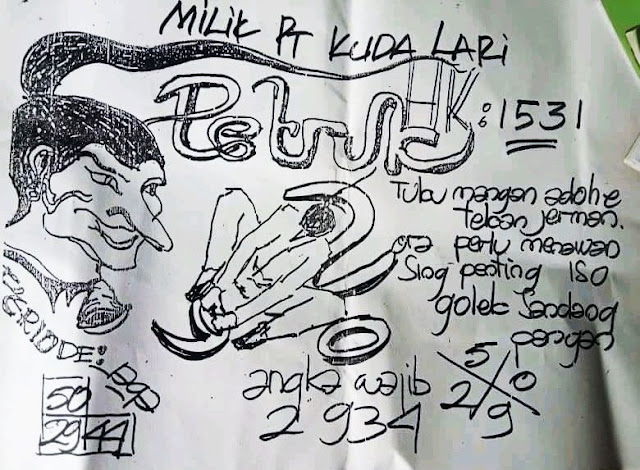 MILIK PT KUDA LARI
Petruk
HK: 1531
Tuku mangan adohe
telaan jerman.
ora perlu menawan
Sing penting ISO
golek Sandang
pangan
PERIODE:
50
29 44
angka wajib
2934
5
2 0
9